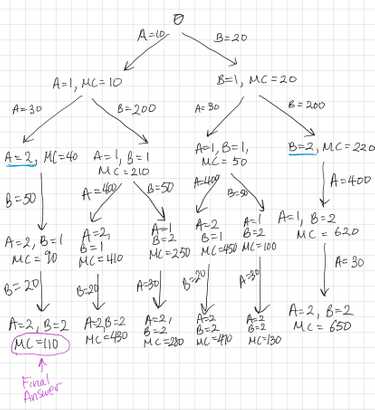 0
A=10
B=20
A=1, MC=10
B=1, MC=20
A=30
B=200
A=30
B=200
A=2, MC=40
A=1, B=1
MC=210
A=1, B=1,
MC=50
B=2, MC=220
B=50
A=400
B=50
A=400
B=50
A=400
A=2, B=1
MC=90
A=2,
B=1
MC=410
A=1
B=2
MC=250
A=2
B=1
MC=450
A=1
B=2
MC=100
A=1, B=2
MC=620
B=20
B=20
A=30
B=20
A=30
A=30
A=2, B=2
MC=110
A=2, B=2
MC=430
A=2,
B=2
MC=280
A=2
B=2
MC=470
A=2
B=2
MC=130
A=2, B=2
MC=650
Final
Answer